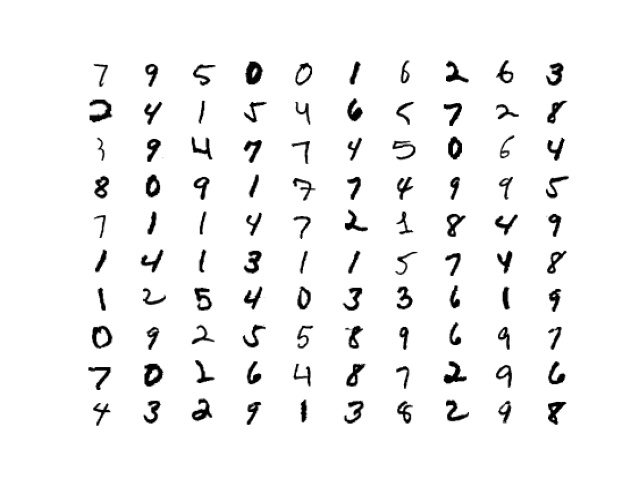 7 9 5 0 0 1 6 2 6 3
2 4 1 5 4 6 5 7 2 8
3 9 4 7 7 4 5 0 6 4
8 0 9 1 7 7 4 9 9 5
7 1 1 4 7 2 1 8 4 9
1 4 1 3 1 1 5 7 4 8
1 2 5 4 0 3 3 6 1 9
0 9 2 5 5 8 9 6 9 7
7 0 2 6 4 8 7 2 9 6
4 3 2 9 1 3 8 2 9 8